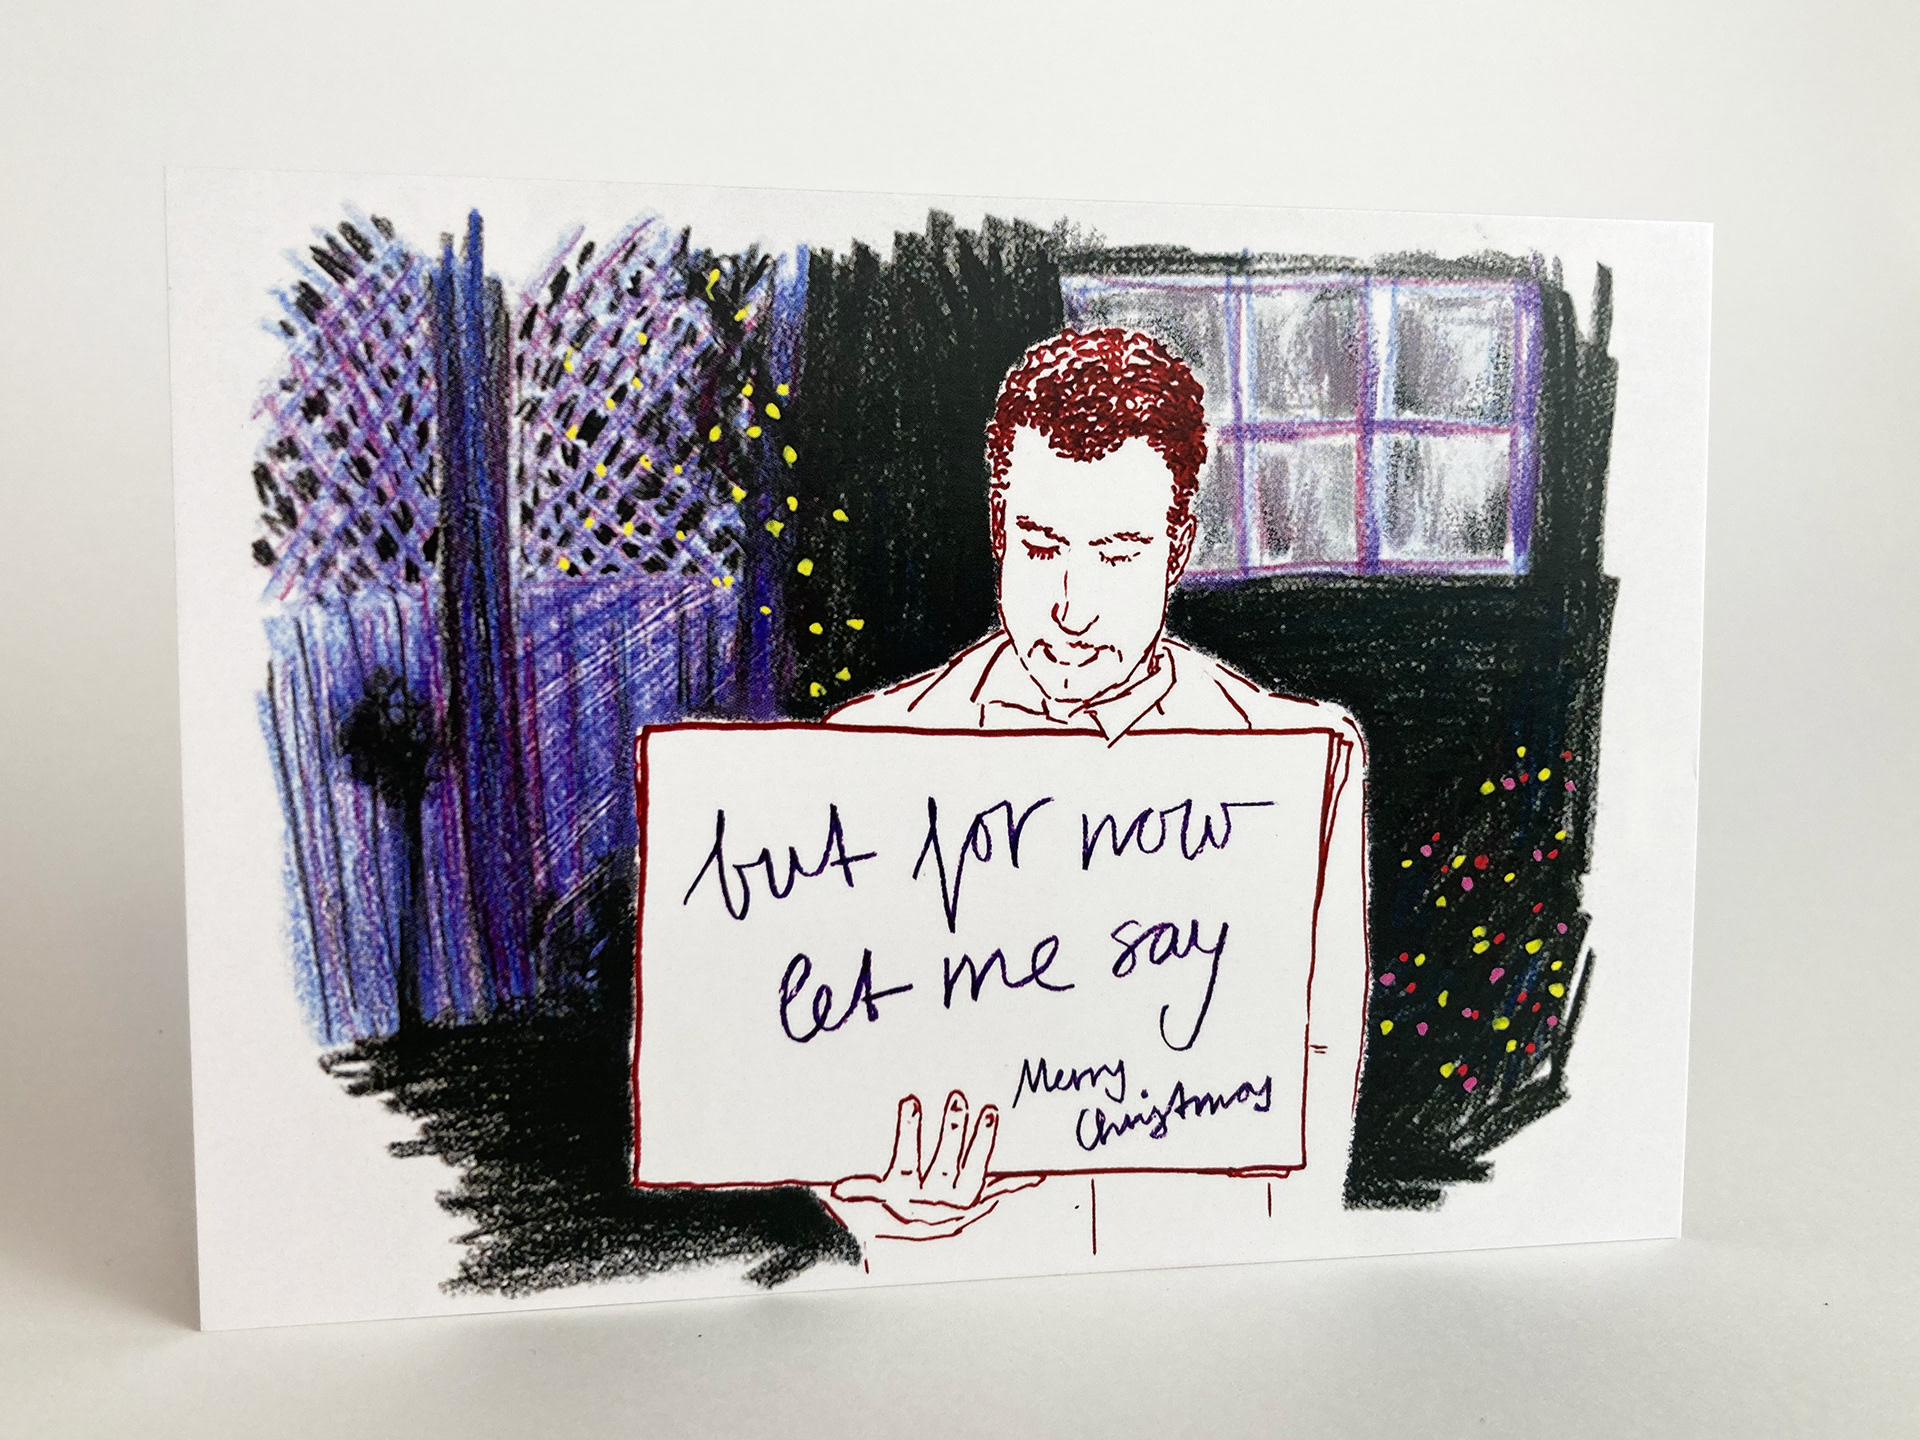 but for now
let me say
Merry
Christmas